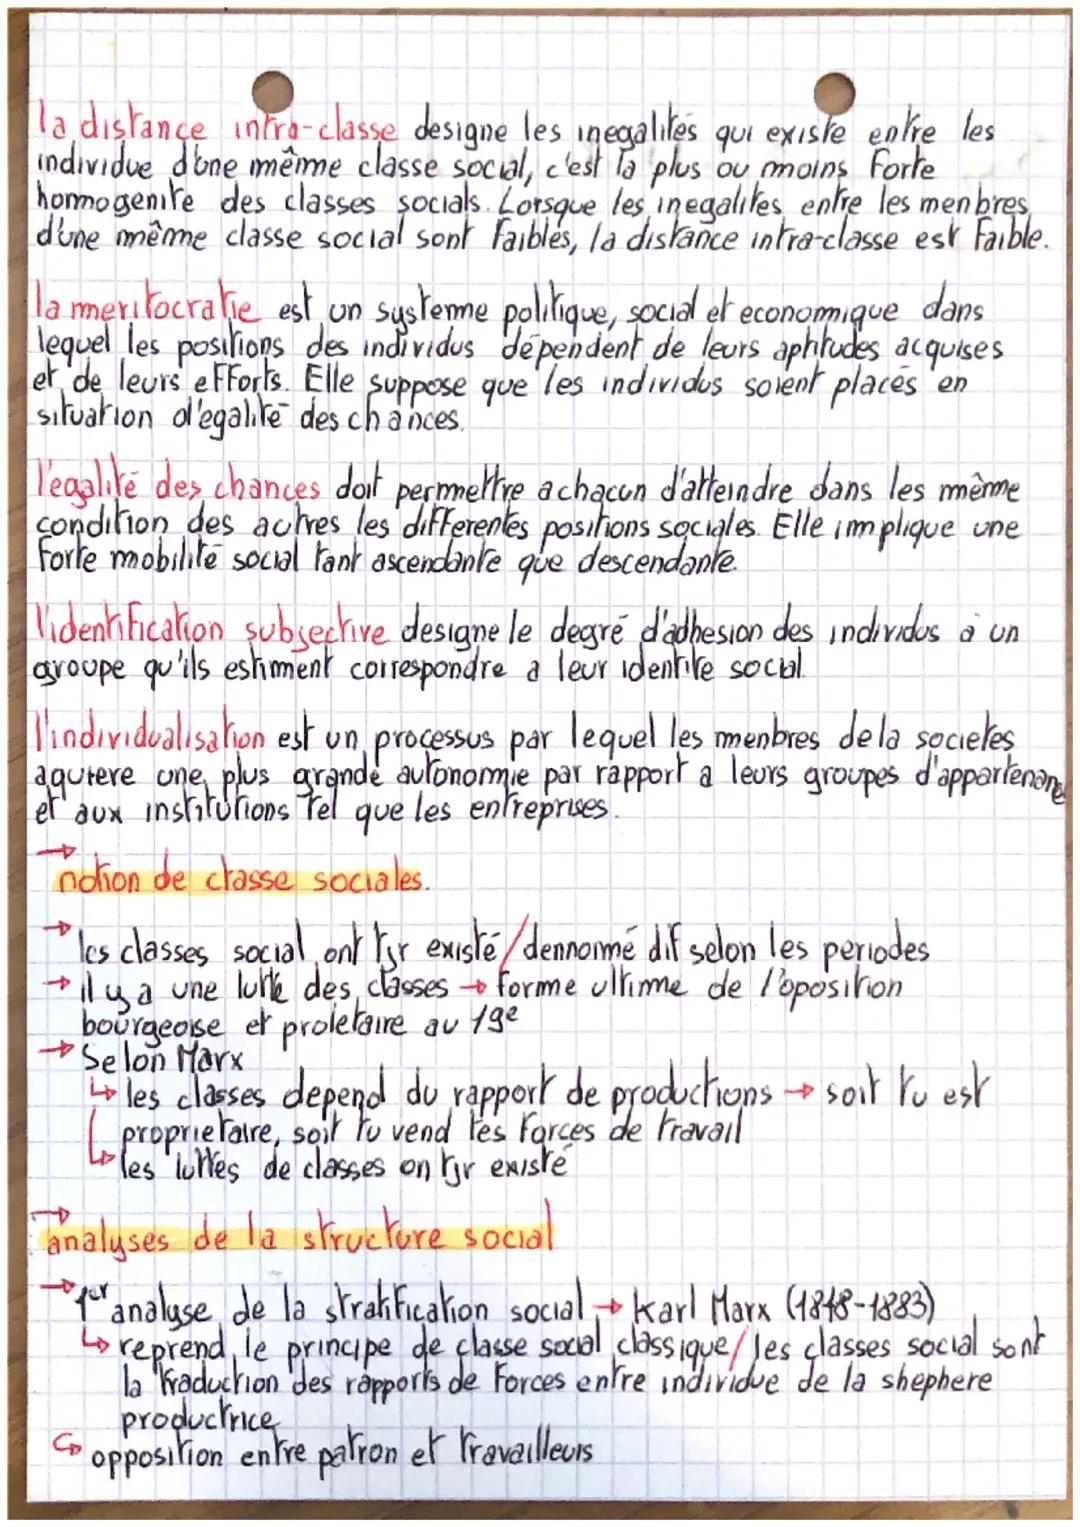 la distance intra-classe designe les inegalités qui existe entre les
individue d'une mêmme classe social, c'est la plus ou moins forte
hommogenite des classes socials. Lorsque les inegalites entre les menbres
d'une mêmme classe social sont faibles, la distance intra-classe est faible.
la meritocratie est un systemme politique, social et economique dans
lequel les positions des individus dépendent de leurs aptitudes acquises
et de leurs efforts. Elle suppose que les individus soient placés en
situation d'egalité des chances.
l'egalité des chances doit permmettre a chacun d'atteindre dans les mêmme
condition des autres les differentes positions sociales. Elle implique une
forte mobilité social tant ascendante que descendante.
l'identification subjective designe le degré d'adhesion des individus à un
groupe qu'ils estimment correspondre a leur identite social.
l'individualisation est un processus par lequel les menbres de la societes
aquiere une plus grande autonomie par rapport a leurs groupes d'appartenance
et aux institutions tel que les entreprises.
→
notion de classe sociales.
→ les classes social ont tjr existé/dennommé dif selon les periodes
→ il y a une lutte des classes → forme ultimme de l'oposition
bourgeoise et proletaire au 19e
→ Selon Marx
↳ les classes depend du rapport de productions → soit tu est
proprietaire, soit tu vend tes forces de travail
↳ les luttes de classes on tjr existé
→
analyses de la structure social
→ 1er analyse de la stratification social → Karl Marx (1848-1883)
↳ reprend le principe de classe social classique/les classes social sont
la traduction des rapports de forces entre individue de la shephere
productrice
↳ opposition entre patron et travailleurs